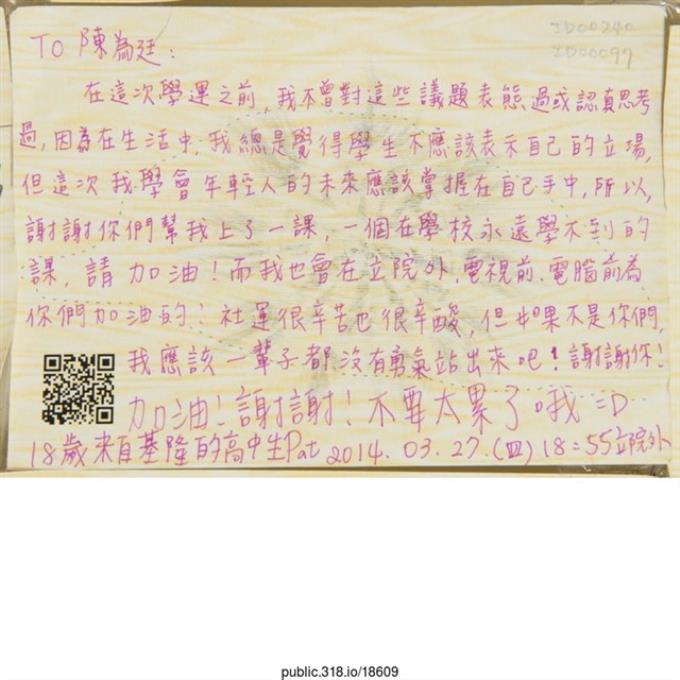 TO 陳為廷:
ID00240
ID00097
在這次學運之前,我不曾對這些議題表態過或認真思考
過,因為在生活中,我總是覺得學生不應該表示自己的立場,
但這次我學會年輕人的未來應該掌握在自己手中,所以,
謝謝你們幫我上了一課,一個在學校永遠學不到的
課,請加油!而我也會在立院外、電視前、電腦前為
你們加油的!社運很辛苦也很辛酸,但如果不是你們,
我應該一輩子都沒有勇氣站出來吧!謝謝你!
加油!謝謝!不要太累了哦=D
18歲來自基隆的高中生Pat 2014.03.27.(四)18:55立院外
public.318.io/18609